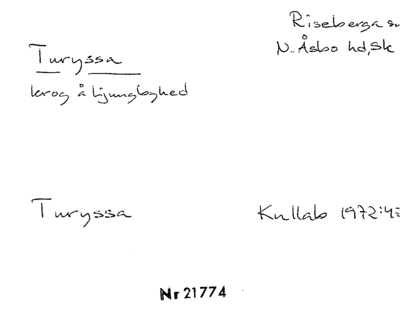 Riseberga s
N. Åsbo hd, Sk
Turyssa
krog å Ljungbyhed
Turyssa
Kullab 1972:4
Nr 21774